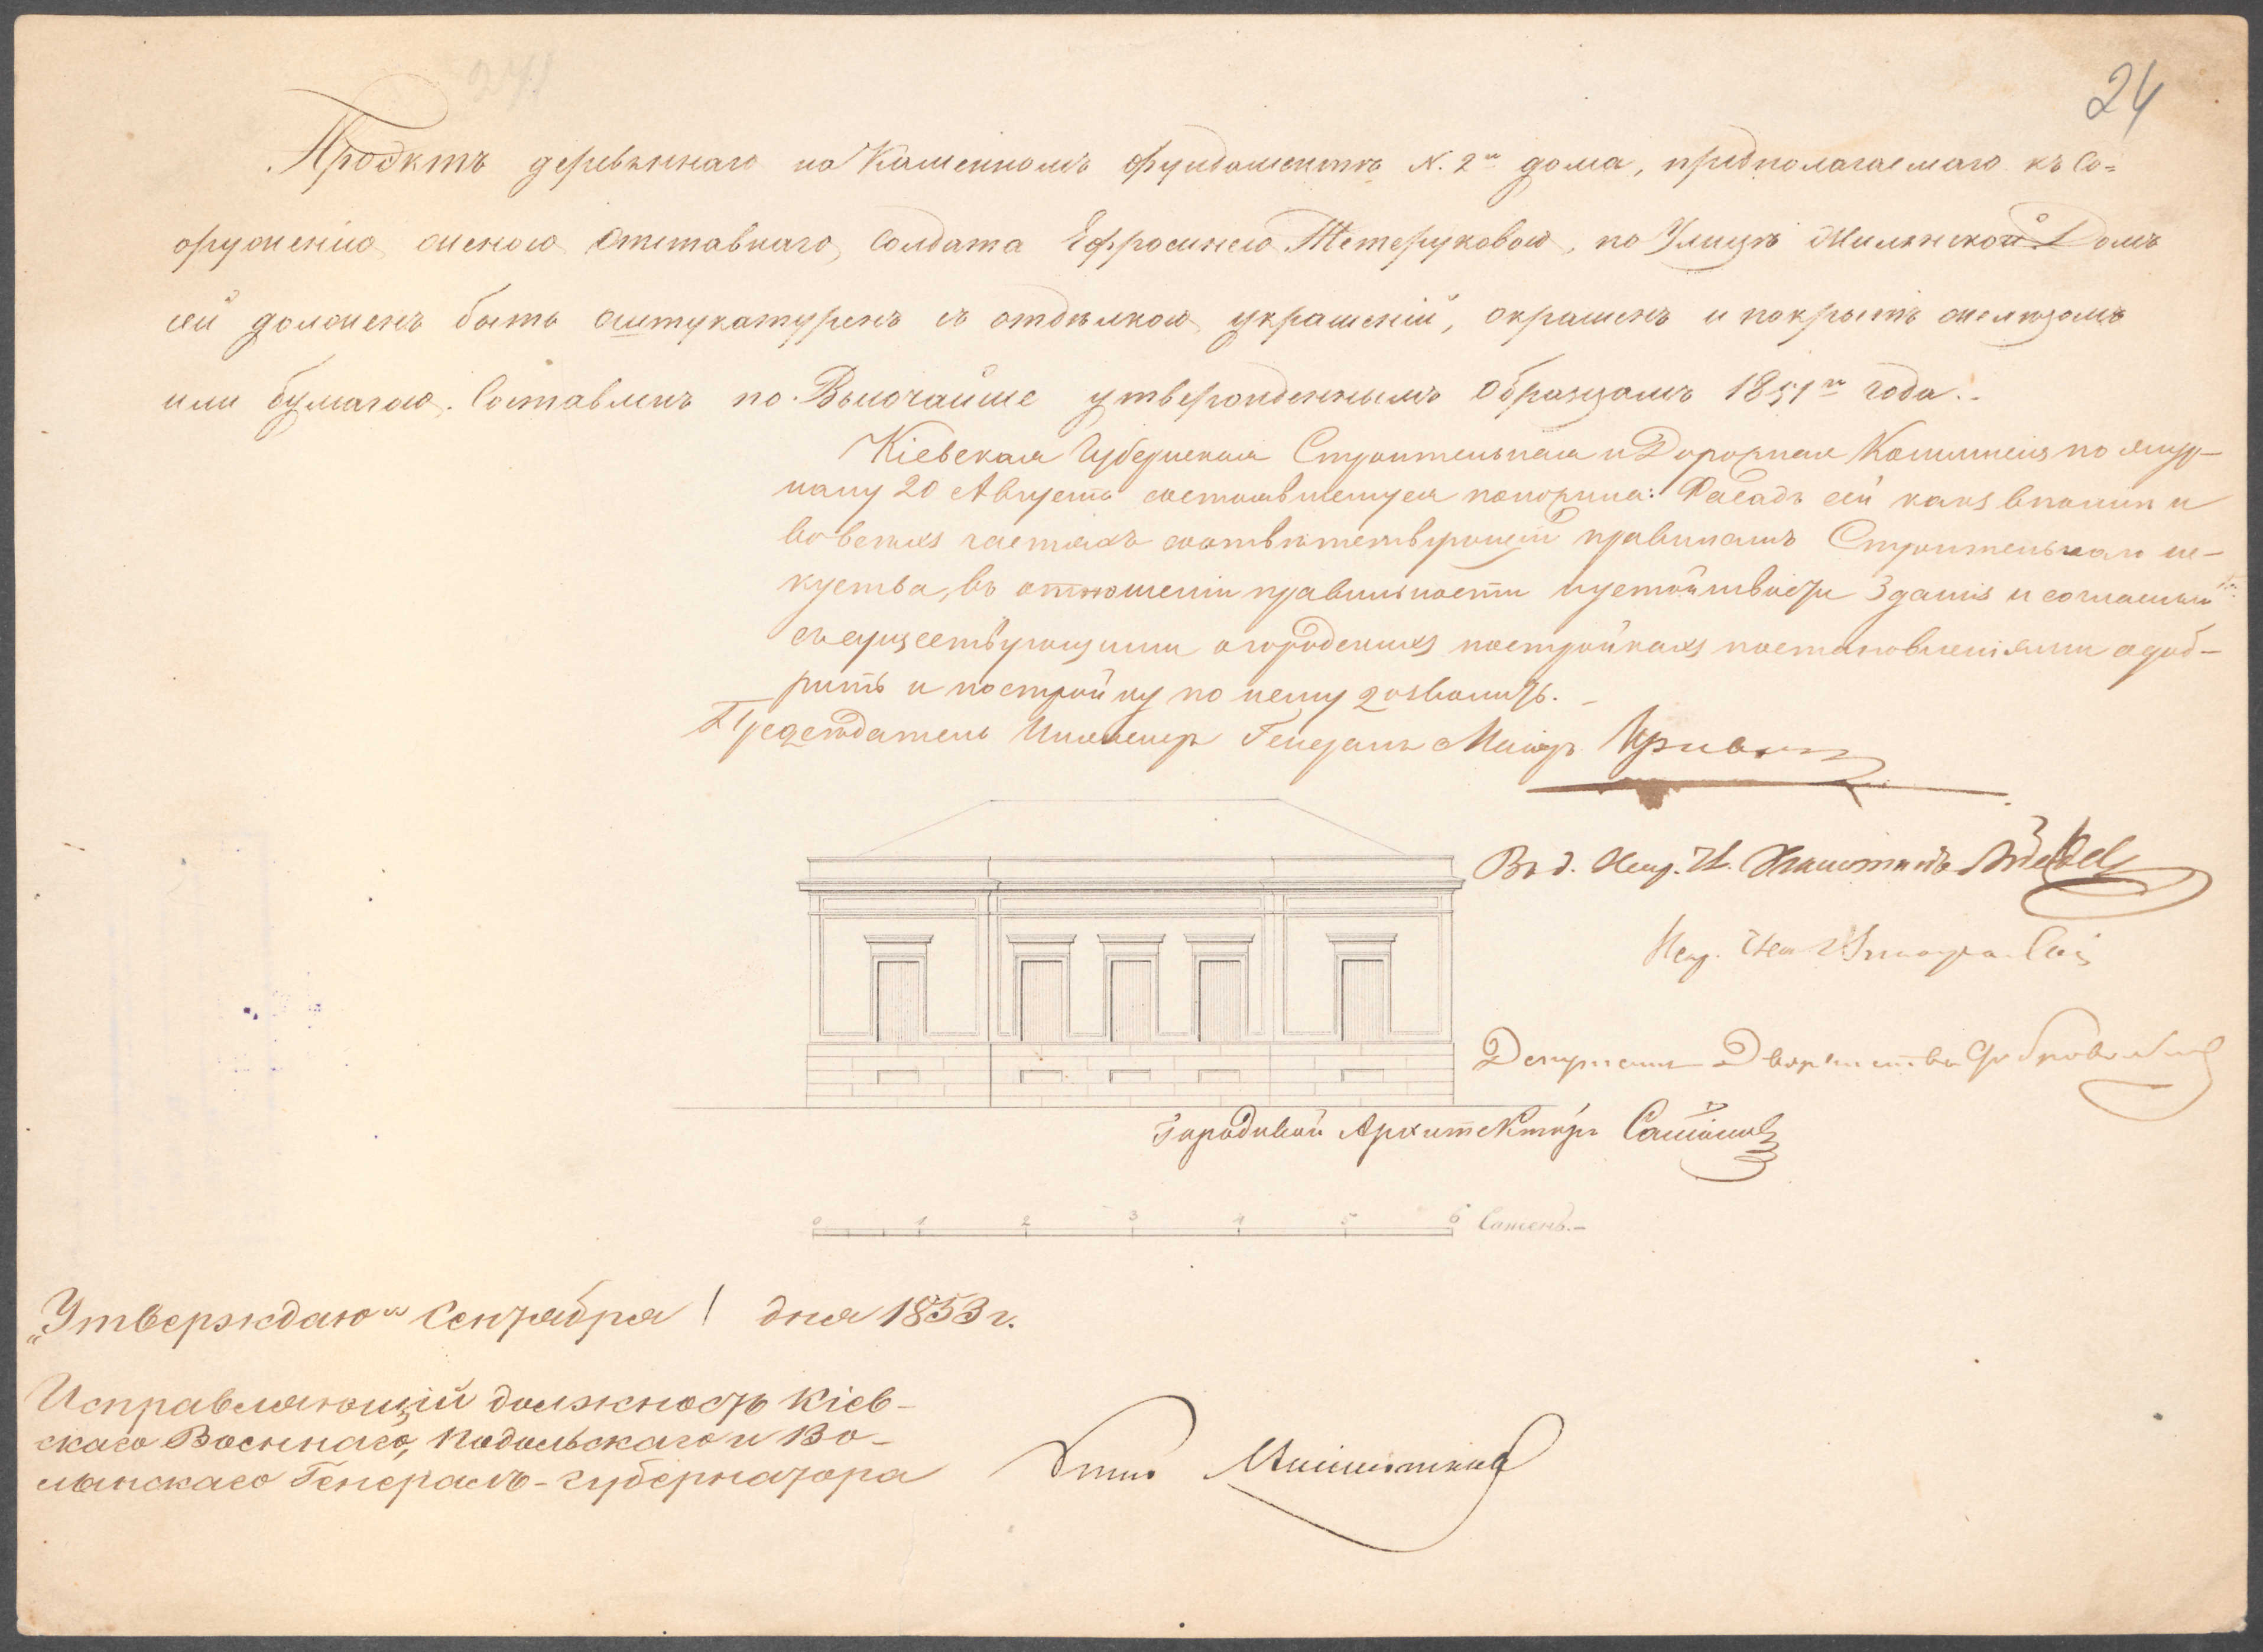 24
Проэктъ деревяннаго на Каменномъ фундаментѣ N. 2й дома, предполагаемаго къ со=
оруженію женою Отставнаго Солдата Ефросинею Тетеруковою, по Улицѣ Жилянской. Домъ
сей долженъ быть оштукатуренъ съ отдѣлкою украшеній, окрашенъ и покрытъ желѣзомъ
или бумагою. Составленъ по Высочайше утвержденнымъ Образцамъ 1851го года.
Кіевская Губернская Строительная и Дорожная Коммисія по жур-
налу 20 Августа состоявшемуся положила: Фасадъ сей какъ вполнѣ и
во всѣхъ частяхъ соотвѣтствующій правиламъ Строительнаго ис-
куства, въ отношеніи правильности и устойчивости Зданія и согласный
съ существующими о городскихъ постройкахъ постановленіями одоб-
рить и постройку по нему дозволить.
Предсѣдатель Инженеръ Генералъ Маіоръ
Депутатъ Дворянства
Городовой Архитекторъ
0 1 2 3 4 5 6 Сажень.
„Утверждаю“ Сентября 1 дня 1853 г.
Исправляющій должность Кіев-
скаго Военнаго, Подольскаго и Во-
лынскаго Генералъ-Губернатора